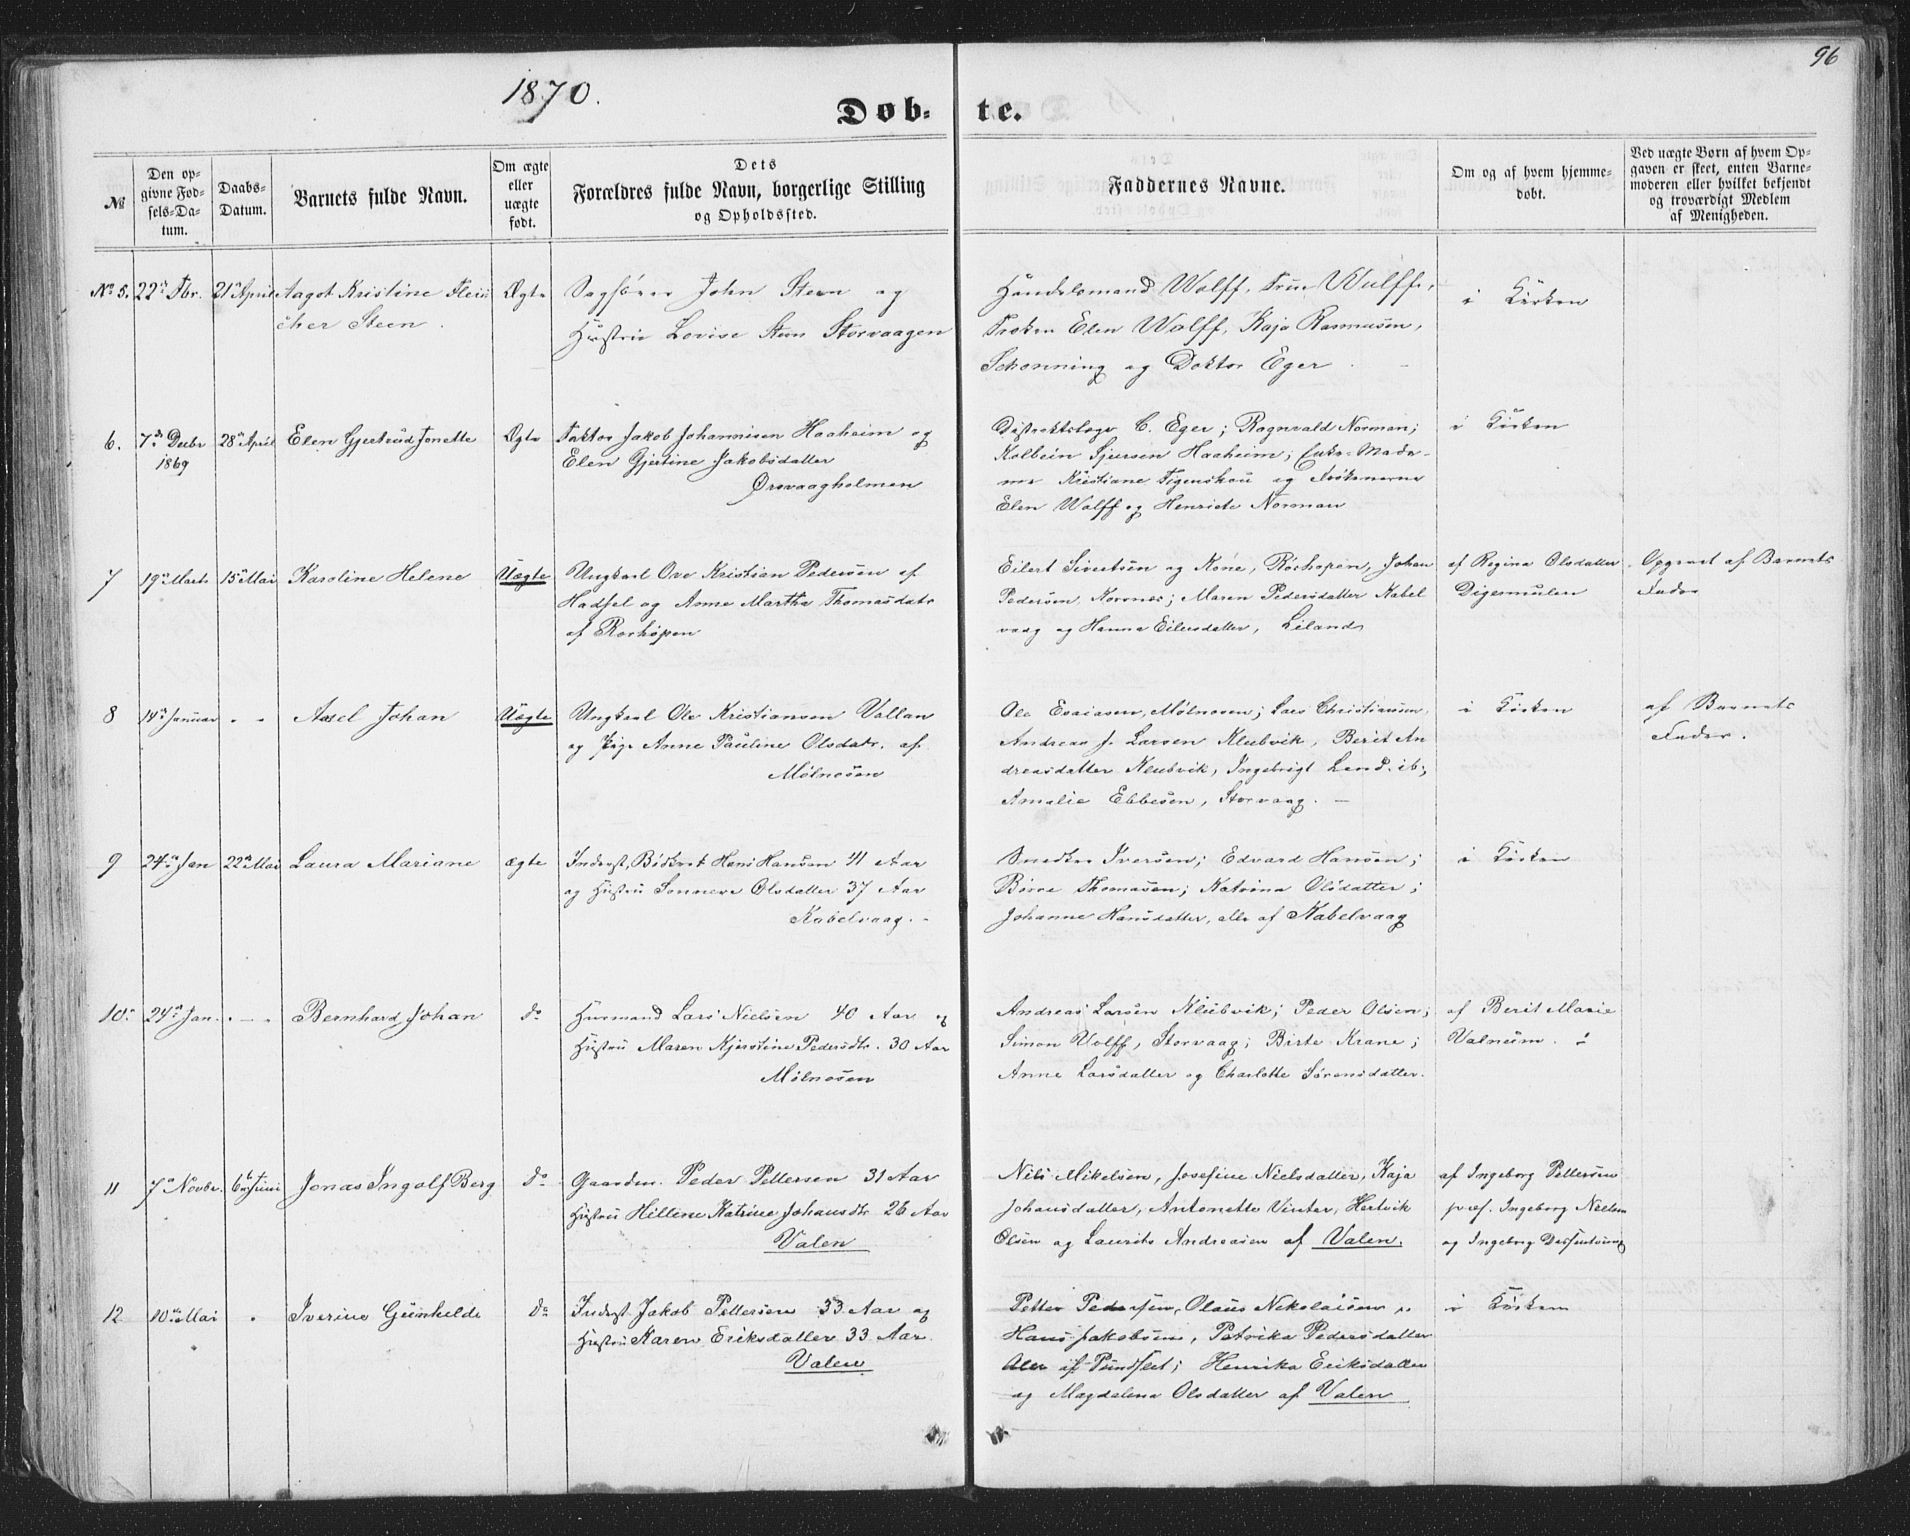 96
1870.
Døb-
te.
№
Den op-
givne Fød-
sels-Da-
tum.
Daabs-
Datum.
Barnets fulde Navn.
Om ægte
eller
uægte
født.
Dets
Forældres fulde Navn, borgerlige Stilling
og Opholdssted.
Faddernes Navne.
Om og af hvem hjemme-
døbt.
Ved uægte Børn af hvem Op-
gaven er skeet, enten Barne-
moderen eller hvilket bekjendt
og troværdigt Medlem
af Menigheden.
№ 5. 22de Fbr. 21de April Aagot Kristine Fleis
cher Steen.
Ægte
Sagfører John Steen og
Hustrue Lovise Steen Storvaagen
Handelsmand Wolff, Frue Wulff,
Frøken Elen Wolff, Kaja Rasmusen,
Schønning og Doktor Eger.
i Kirken
6. 7de Decbr 28de April Elen Gjertrud Jonette
1869
Ægte
Faktor Jakob Johannisen Haaheim og
Elen Gjertine Jakobsdatter
Ørsvaagholmen
Distriktslæge C. Eger; Ragnvald Norman;
Kolbein Sjursen Haaheim; Enke-Mada-
me Kristiane Figenskou og Frøknerne
Elen Wolff og Henriete Norman
i Kirken
7 19de Marts 15de Mai Karoline Helene
Uægte
Ungkarl Ove Kristian Pedersen af
Hadsel og Anne Martha Thomasdatr
af Rørhopen
Eilert Sivertsen og Kone, Rørhopen, Johan
Pedersen, Korsnes; Maren Pedersdatter Kabel
vaag og Hanna Eilersdatter, Liland
af Regina Olsdatter
Digermulen
Opgivet af Barnets
Fader
8 14de Januar - - Axel Johan
Uægte
Ungkarl Ole Kristiansen Vollan
og Pige Anne Pauline Olsdatr. af
Mølnosen
Ole Esaiasen, Mølnosen; Lars Christiansen,
Andreas J. Larsen Klubvik, Berit An
dreasdatter Klubvik, Ingebrigt Lund. ib;
Amalie Ebbesen, Storvaag. -
i Kirken
af Barnets
Fader.
9 24de Jan 22de Mai Laura Mariane
ægte
Inderst, Bødker Hans Hansen 41 Aar
og Hustru Sønneve Olsdatter 37 Aar
Kabelvaag. -
Snedker Iversen; Edvard Hansen;
Børre Thomasen; Katrina Olsdatter;
Johanne Hansdatter, alle af Kabelvaag
i Kirken
10. 24de Jan. - - - Bernhard Johan
do
Husmand Lars Nielsen 40 Aar og
Hustru Maren Kjerstine Pedersdtr. 30 Aar
Mølnosen
Andreas Larsen Klubvik; Peder Olsen;
Simon Wolff, Storvaag; Birte Krane;
Anne Larsdatter og Charlotte Sørensdatter.
af Berit Marie
Valnum.
11 7de Novbr. 6te Juni Jonas Ingolf Berg
do
Gaardm. Peder Pettersen 31 Aar
Hustru Hillene Katrine Johansdtr 26 Aar
Valen
Nils Mikelsen, Josefine Nielsdatter, Kaja
Johansdatter, Antonette Vinter, Hertvik
Olsen og Laurits Andreasen af Valen.
af Ingeborg Pettersen
præs. Ingeborg Nielsen
og Ingeborg
12 10de Mai . Iverine Gunhilde
do
Inderst Jakob Pettersen 33 Aar og
Hustru Karen Eriksdatter 33 Aar.
Valen
Petter Pedersen, Olaus Nikolaisen
Hans Jakobsen, Petrika Pedersdatter
Alle af Pundslet; Henrika Eriksdatter
og Magdalena Olsdatter af Valen
i Kirken